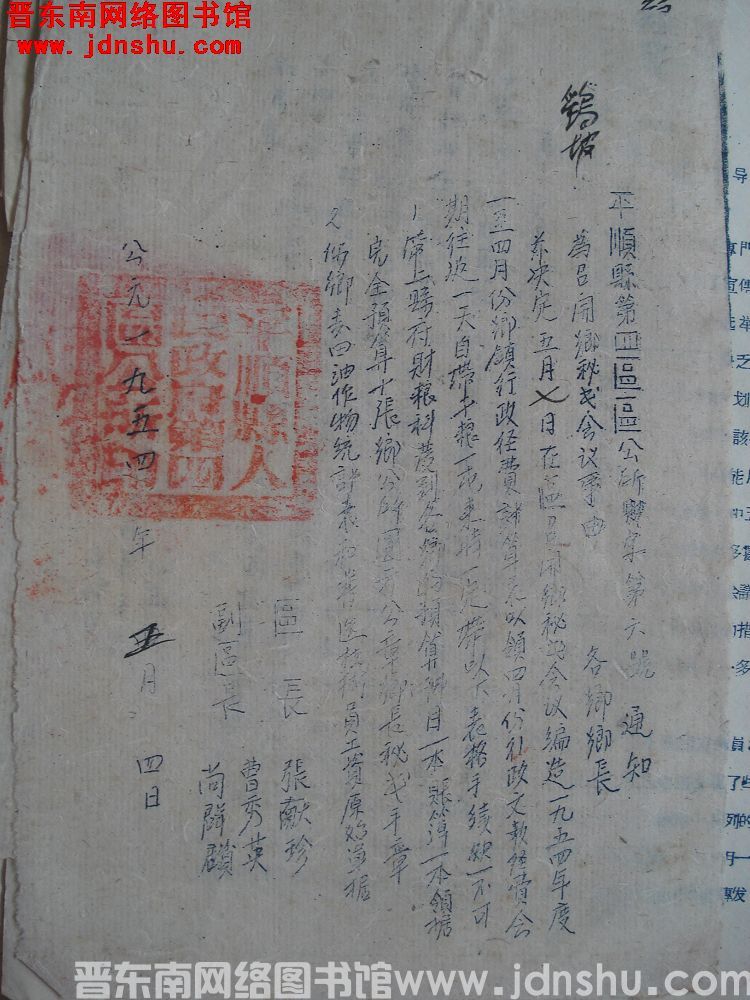 晋东南网络图书馆
www.jdnshu.com
鸡坡
平順縣第四區區公所 字第六號 通知
各鄉鄉長
為召開鄉秘书会议事由
茲决定五月七日在區召開鄉秘书会议編造一九五四年度
一至四月份鄉鎮行政经費計算表以領四月份行政文教经費会
期往返一天自帶干粮一定帶以下表格手续缺一不可
1 帶上縣府財粮科發到各鄉的預算科目一本賬簿一本領据
完全預算十張鄉公所圓形公章鄉长秘书手章
2 鄉表四油作物統計表和 員工資原始單据
區長 張献珍
副區長 曹秀英
尚
公元一九五四年 五月 四日
平順縣人
民政府第四
區公所印
晋东南网络图书馆www.jdnshu.com